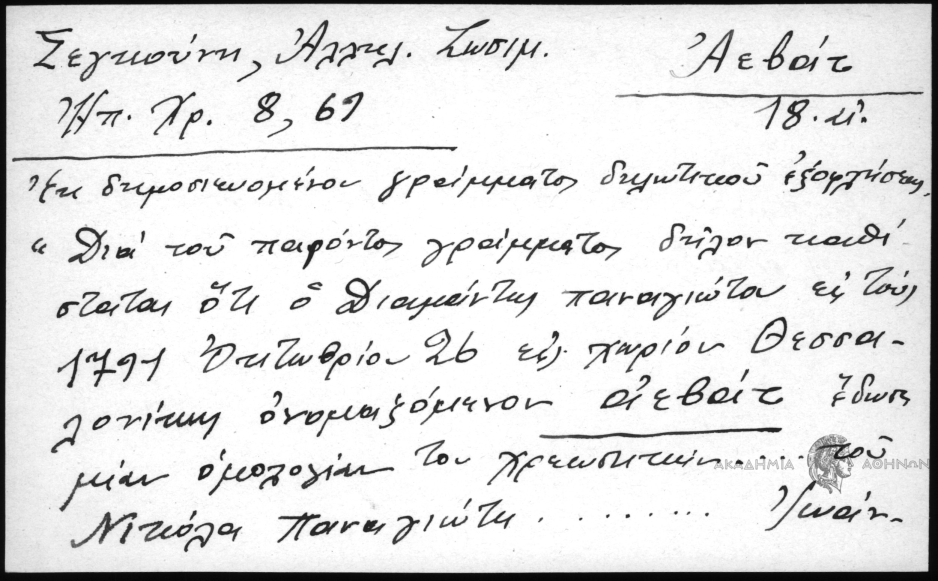 Σεγκούνη, Ἀλληλ. Ζωσιμ.
Ἀεβάτ
Ἠπ. Χρ. 8, 61
18. αἰ.
Ἐκ δημοσιευομένου γράμματος δηλωτικοῦ ἐξοφλήσεως,
"Διά τοῦ παρόντος γράμματος δῆλον καθί-
σταται ὅτι ὁ Διαμάντης παναγιώτου εἰς τούς
1791 Ὀκτωβρίου 26 εἰς χωρίον Θεσσα-
λονίκης ὀνομαζόμενον ἀεβάτ ἔδωσε
μίαν ὁμολογίαν του χρεωστικήν .... τοῦ
ΑΚΑΔΗΜΙΑ ΑΘΗΝΩΝ
Νικόλα παναγιώτη ......... Ἰωάν-